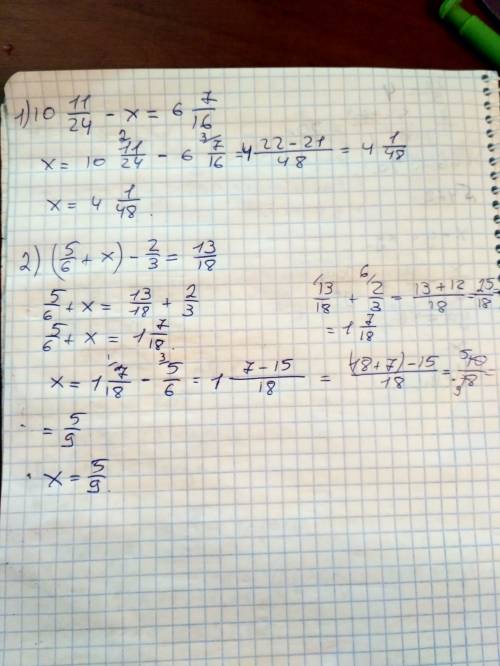 1) 10 11/24 - x = 6 7/16
x = 10 11/24 (2/) - 6 7/16 (3/) = 4 (22 - 21)/48 = 4 1/48
x = 4 1/48.
2) (5/6 + x) - 2/3 = 13/18
5/6 + x = 13/18 + 2/3
13/18 (1/) + 2/3 (6/) = (13 + 12)/18 = 25/18 =
= 1 7/18
5/6 + x = 1 7/18.
x = 1 7/18 (1/) - 5/6 (3/) = 1 (7 - 15)/18 = ((18 + 7) - 15)/18 = 10/18 (5/9) =
= 5/9
x = 5/9.